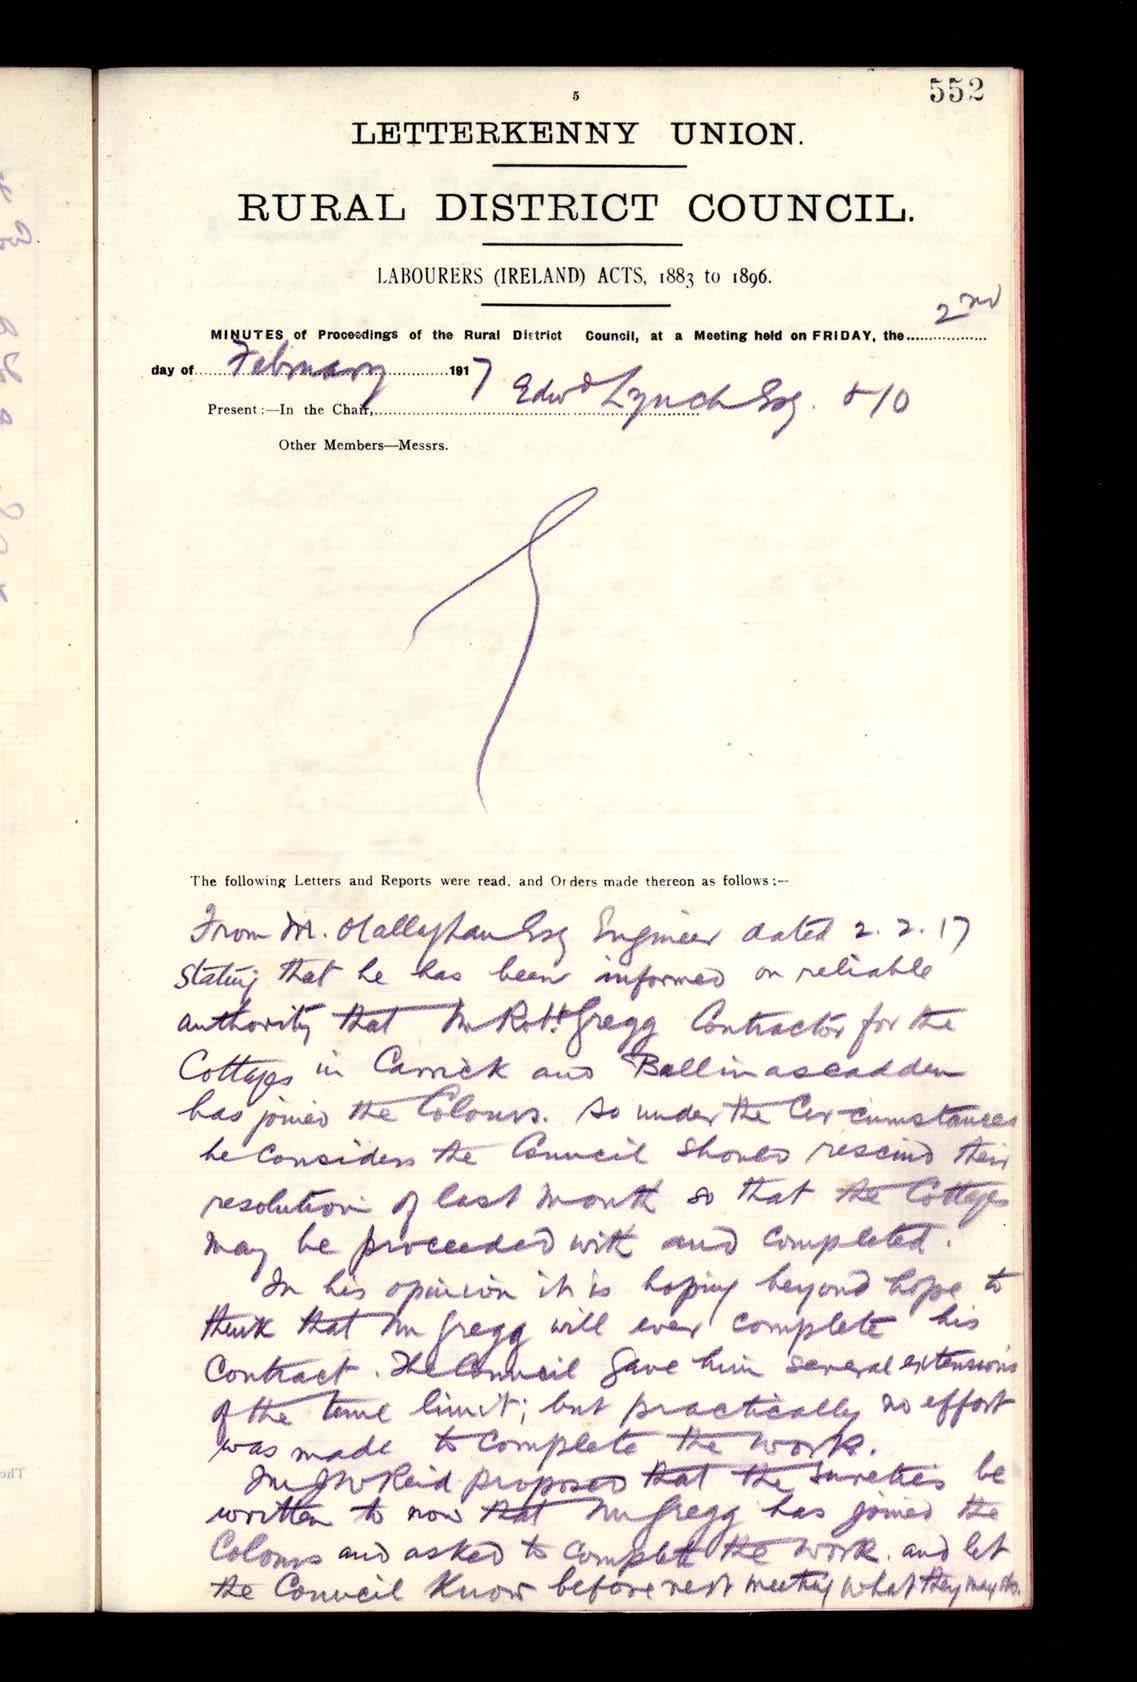 552
5
LETTERKENNY UNION.
RURAL DISTRICT COUNCIL.
LABOURERS (IRELAND) ACTS, 1883 to 1896.
MINUTES of Proceedings of the Rural District Council, at a Meeting held on FRIDAY, the 2nd
day of February 1917
Present:—In the Chair, Edwd Lynch Esq. & 10
Other Members—Messrs.
The following Letters and Reports were read, and Orders made thereon as follows:—
From M. O'Callaghan Esq Engineer dated 2. 2. 17
stating that he has been informed on reliable
authority that Mr Robt. Gregg Contractor for the
Cottages in Carrick and Ballinascadden
has joined the Colours. So under the Circumstances
he Considers the Council should rescind their
resolution of last month so that the Cottages
may be proceeded with and completed.
In his opinion it is hoping beyond hope to
think that Mr Gregg will ever complete his
Contract. The Council gave him several extensions
of the time limit; but practically no effort
was made to complete the work.
Mr J W Reid proposed that the Sureties be
written to now that Mr Gregg has joined the
Colours and asked to complete the work. and let
the Council Know before next meeting what they may do.